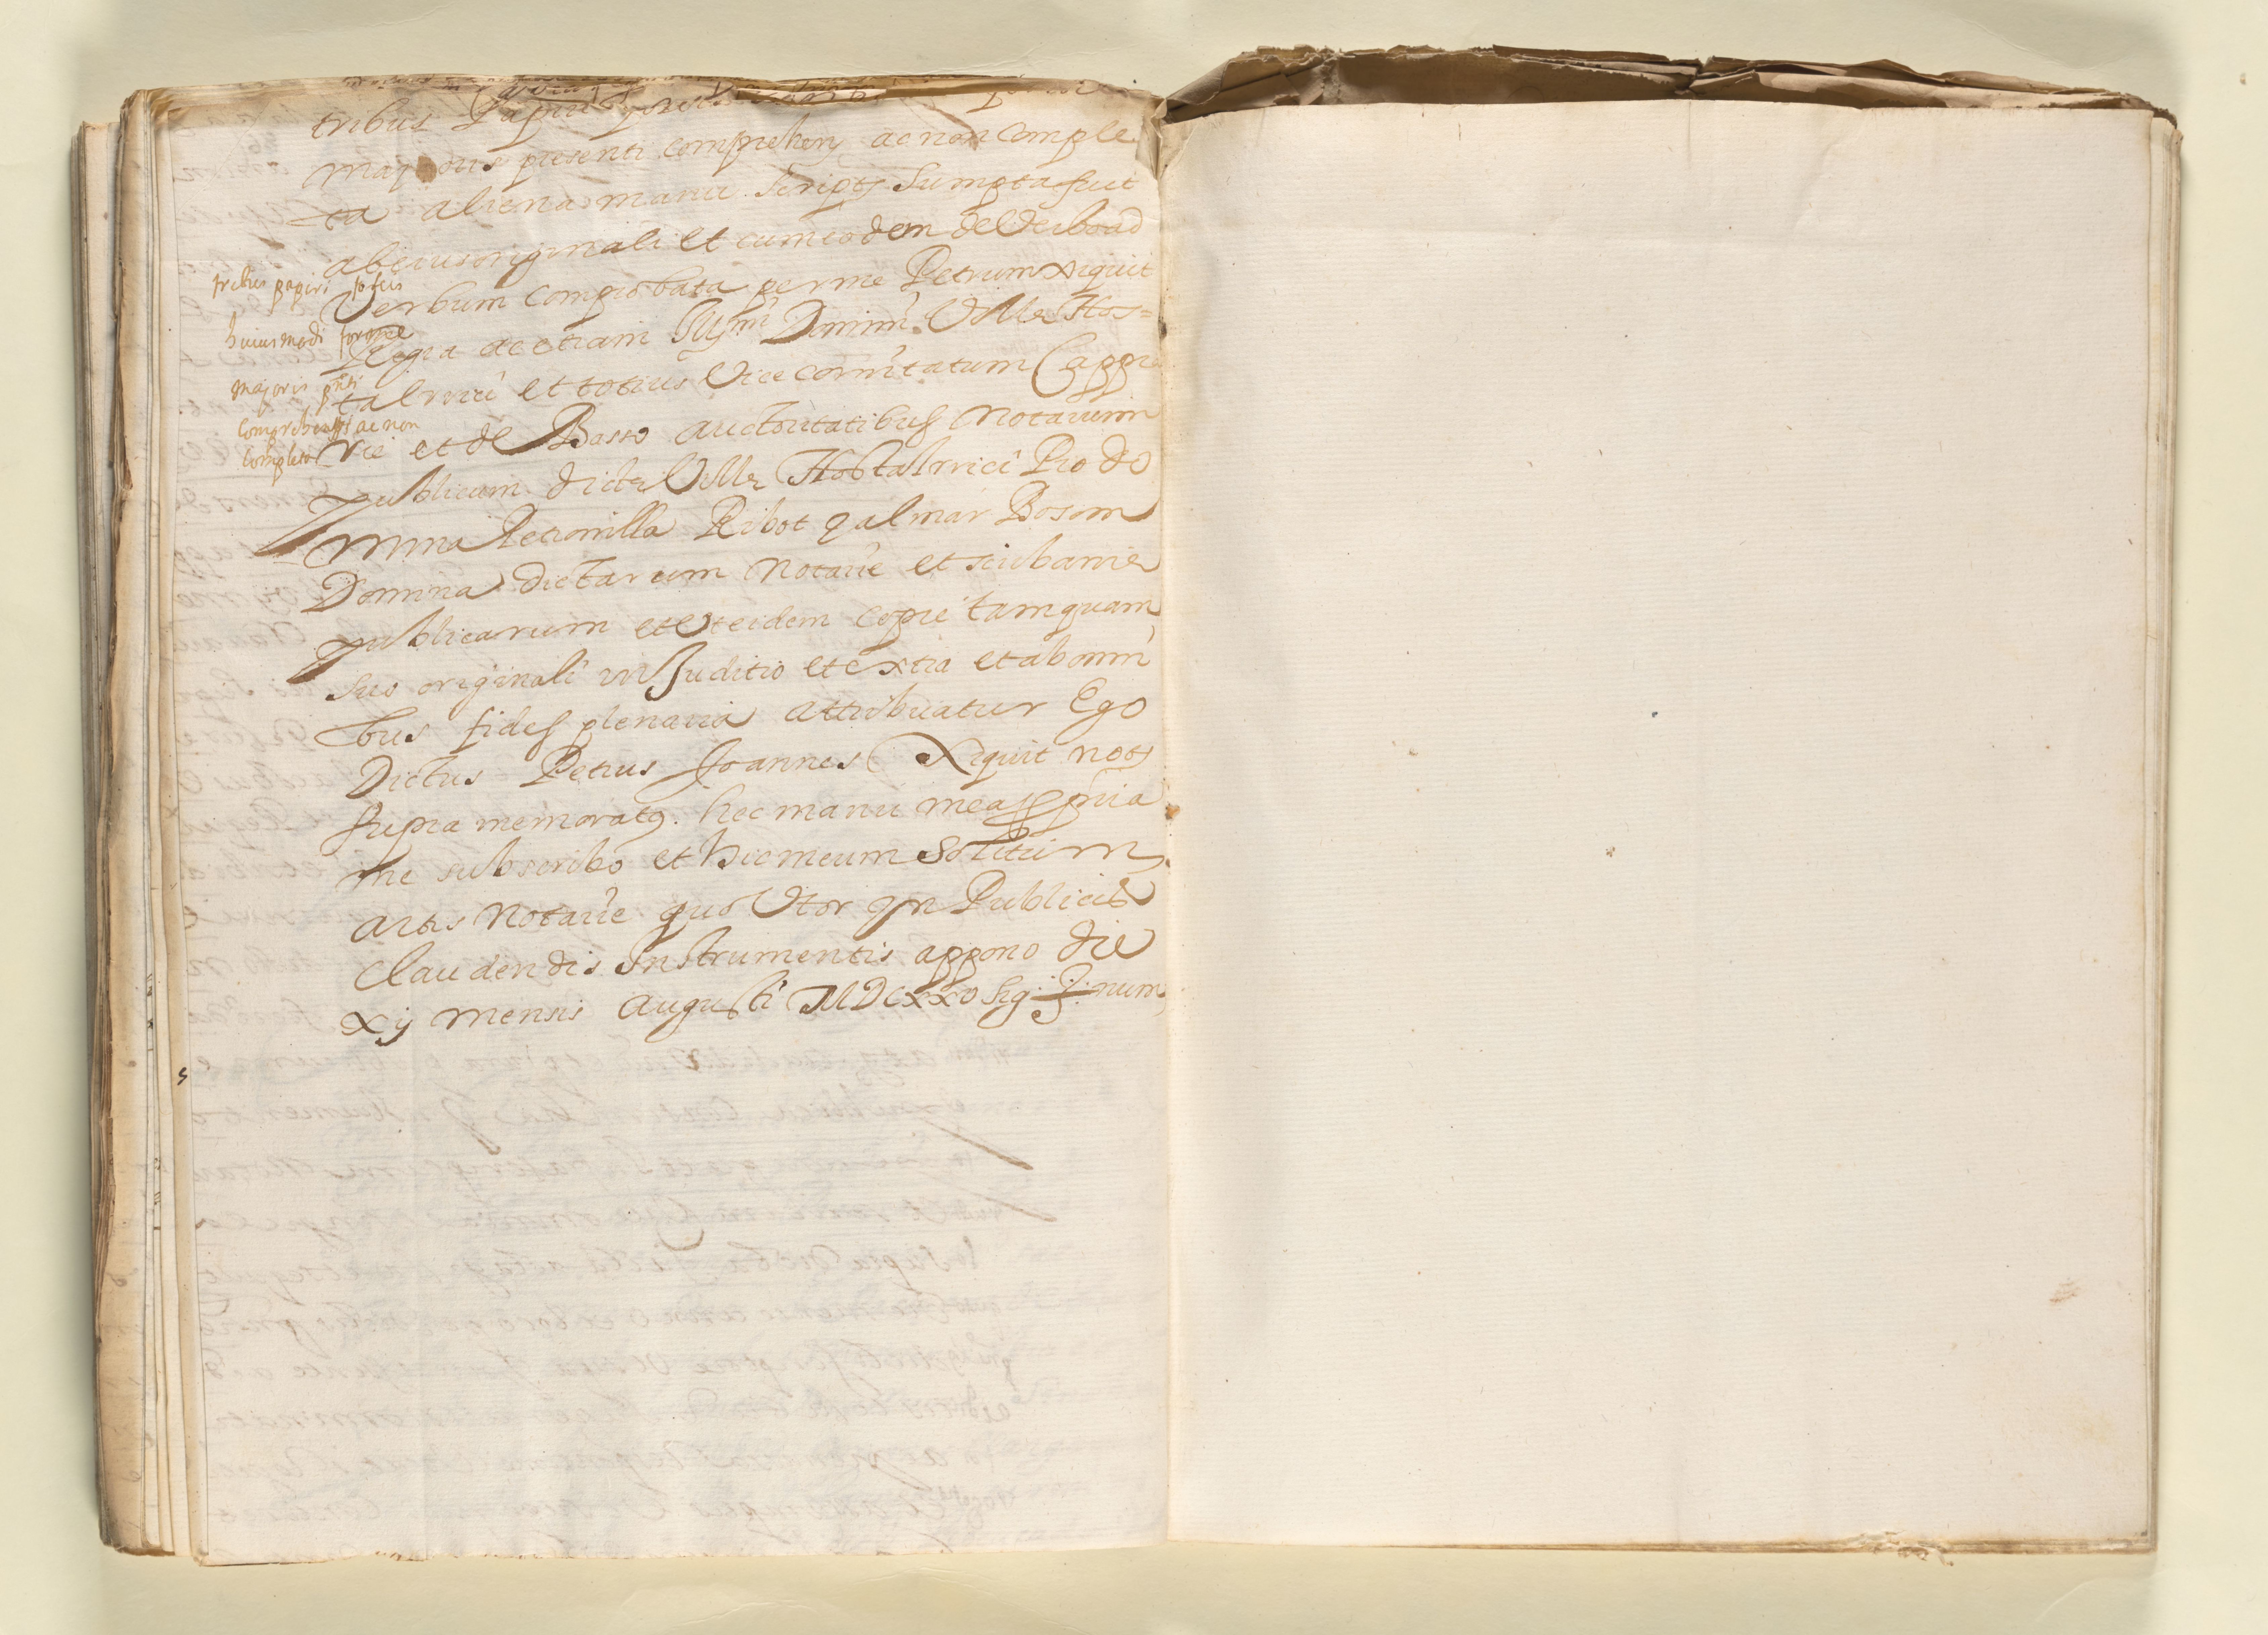 tribus Papiri
majoris presenti comprehens ac non comple
ta aliena manu scripts sumpta fuit
ab eius originali et cum eodem de Verbo ad
Verbum comprobata per me Petrum Xiquit
Regia ac etiam Domini Ville Hos=
talrrici et totius Vice comitatum Cappra
rie et de Basso auctoritatibus Notarium
publicum dicte Ville Hostalrrici Pro do
mina Petronilla Ribot y almar Bosom
Domina dictarum notarie et scribanie
publicarum et Vt eidem copie tamquam
suo originali in Juditio et extra et ab omni
bus fides plenaria attribuatur Ego
Dictus Petrus Joannes Xiquit not
supra memorat hec manu mea ppria
me subscribo et hic meum Solitum
artis Notarie quo Vtor in Publicis
Claudendis Instrumentis appono die
xij mensis Augusti MDCxxo Sig num
tribus papiri foleis
huiusmodi forme
majoris pnti
comprehens ac non
completo